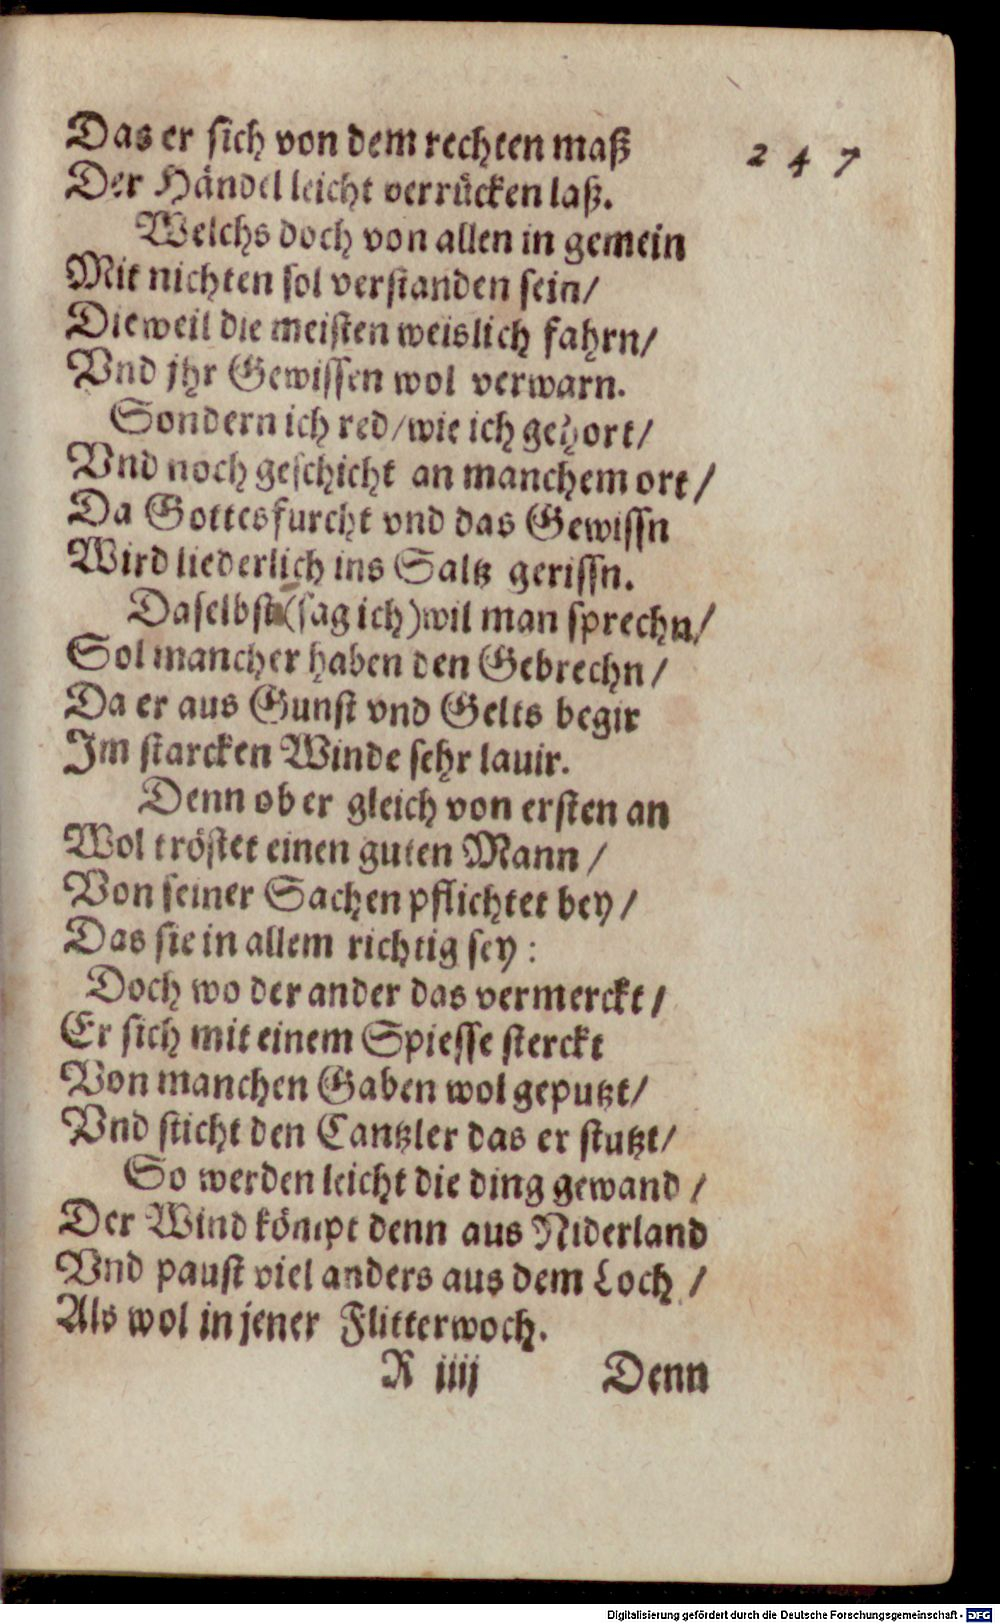 Das er sich von dem rechten maß
247
Der Händel leicht verrücken laß.
Welchs doch von allen in gemein
Mit nichten sol verstanden sein/
Dieweil die meisten weislich fahrn/
Vnd jhr Gewissen wol verwarn.
Sondern ich red/wie ich gehort/
Vnd noch geschicht an manchem ort/
Da Gottesfurcht vnd das Gewissn
Wird liederlich ins Saltz gerissn.
Daselbst (sag ich) wil man sprechn/
Sol mancher haben den Gebrechn/
Da er aus Gunst vnd Gelts begir
Im starcken Winde sehr lauir.
Denn ob er gleich von ersten an
Wol tröstet einen guten Mann/
Von seiner Sachen pflichtet bey/
Das sie in allem richtig sey:
Doch wo der ander das vermerckt/
Er sich mit einem Spiesse sterckt
Von manchen Gaben wol geputzt/
Vnd sticht den Cantzler das er stutzt/
So werden leicht die ding gewand/
Der Wind kömpt denn aus Niderland
Vnd paust viel anders aus dem Loch/
Als wol in jener Flitterwoch.
R iiij Denn
Digitalisierung gefördert durch die Deutsche Forschungsgemeinschaft - DFG